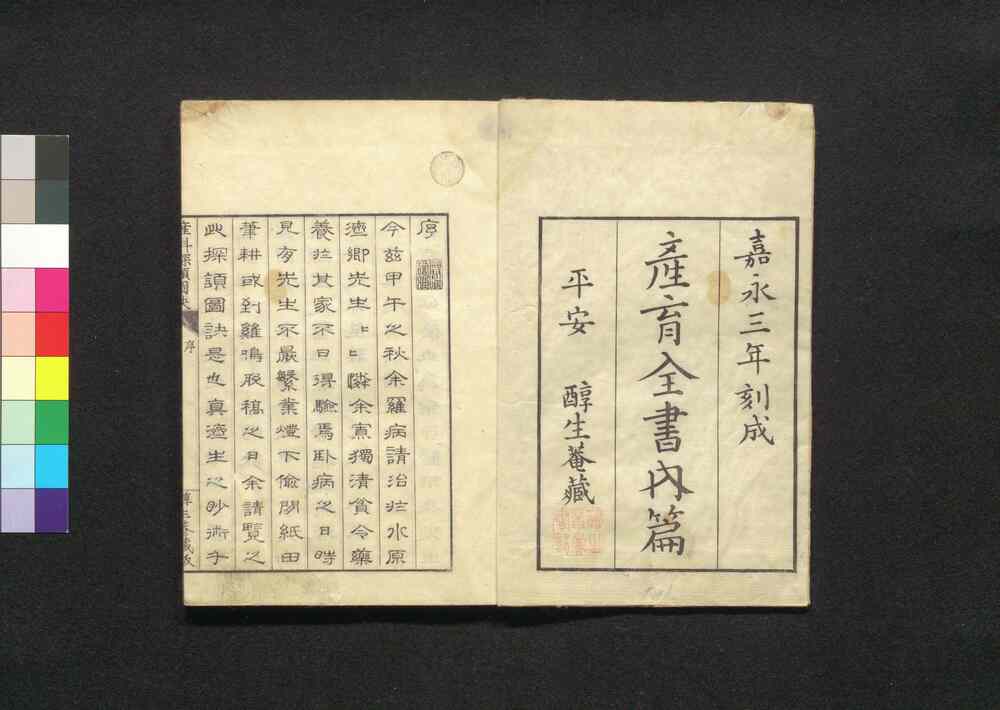 嘉永三年刻成
產育全書內篇
平安 醇生菴藏
序
今茲甲午之秋余罹病請治於水原
先生 憐余寡獨清貧令藥
養於其家不日得驗焉臥病之日時
見有先生不厭繁業燈下偸閑紙田
筆耕或到雞鳴脫稿之日余請覽之
此探頷圖訣是也真濟生之妙術乎
產科探頷圖訣 序
醇生菴藏版